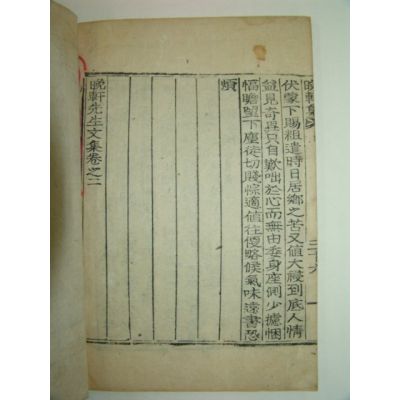 晩軒集卷
二十六
伏蒙下賜粗遣時日居鄉之苦又值大祲到底人情
益見奇異只自歎咄於心而無由奉身座側少攄悃
愊瞻望下塵徒切賤悰適值往便略候氣味遠書恐
煩
晚軒先生文集卷之二